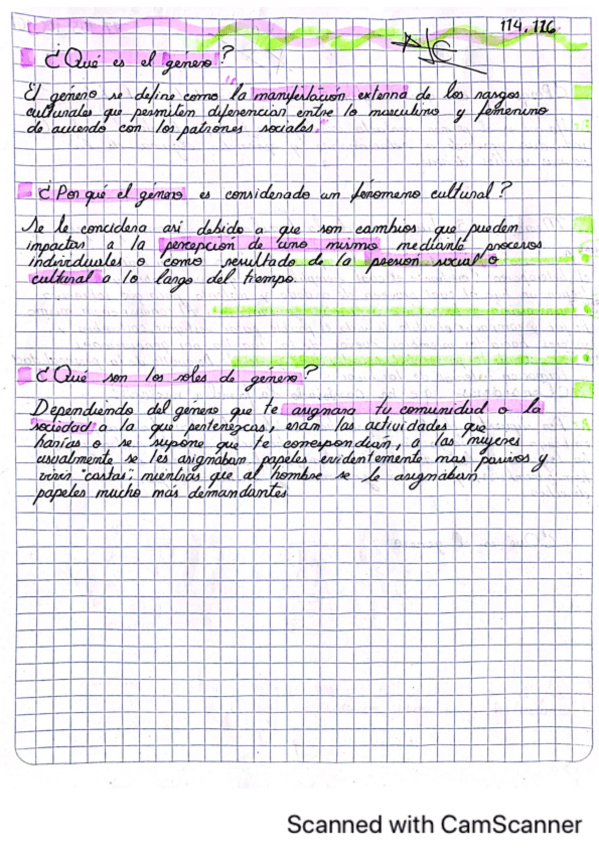 114, 116
¿Qué es el género?
El género se define como "la manifestación externa de los rasgos
culturales que permiten diferencian entre lo masculino y femenino
de acuerdo con los patrones sociales."
¿Por qué el género es considerado un fenomeno cultural?
Se le concidera asi debido a que son cambios que pueden
impactar a la percepción de uno mismo mediante procesos
individuales o como resultado de la presion social o
cultural a lo largo del tiempo.
¿Qué son los roles de género?
Dependiendo del género que te asignara tu comunidad o la
sociedad a la que pertenezcas, eran las actividades que
harías o se supone que te correspondian, a las mujeres
usualmente se les asignaban papeles evidentemente mas pasivos y
vivir "castas", mientras que al hombre se le asignaban
papeles mucho más demandantes
Scanned with CamScanner